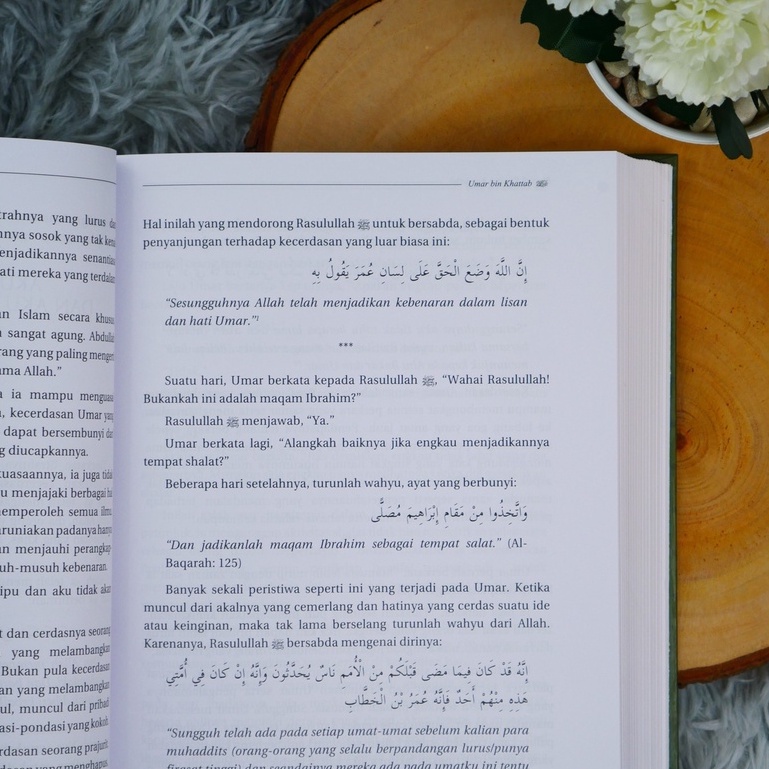 yang lurus
sosok yang tak
senantiasa
ati mereka yang
Islam secara
sangat agung.
rang yang paling
ama Allah.”
ia mampu
kecerdasan Umar yang
dapat bersembunyi
diucapkannya.
ia juga tidak
menjajaki berbagai
semua ilmu
padanya
menjauhi
uh-musuh kebenaran.
ipu dan aku tidak akan
dan cerdasnya seorang
yang melambangkan
Bukan pula kecerdasan
yang melambangkan
muncul dari pribadi
yang kokoh
seorang prajurit
Umar bin Khattab
Hal inilah yang mendorong Rasulullah ﷺ untuk bersabda, sebagai bentuk
penyanjungan terhadap kecerdasan yang luar biasa ini:
إِنَّ اللَّهَ وَضَعَ الْحَقَّ عَلَى لِسَانِ عُمَرَ يَقُولُ بِهِ
“Sesungguhnya Allah telah menjadikan kebenaran dalam lisan
dan hati Umar.”¹
***
Suatu hari, Umar berkata kepada Rasulullah ﷺ, “Wahai Rasulullah!
Bukankah ini adalah maqam Ibrahim?”
Rasulullah ﷺ menjawab, “Ya.”
Umar berkata lagi, “Alangkah baiknya jika engkau menjadikannya
tempat shalat?”
Beberapa hari setelahnya, turunlah wahyu, ayat yang berbunyi:
وَاتَّخِذُوا مِنْ مَقَامِ إِبْرَاهِيمَ مُصَلًّى
“Dan jadikanlah maqam Ibrahim sebagai tempat salat.” (Al-
Baqarah: 125)
Banyak sekali peristiwa seperti ini yang terjadi pada Umar. Ketika
muncul dari akalnya yang cemerlang dan hatinya yang cerdas suatu ide
atau keinginan, maka tak lama berselang turunlah wahyu dari Allah.
Karenanya, Rasulullah ﷺ bersabda mengenai dirinya:
إِنَّهُ قَدْ كَانَ فِيمَا مَضَى قَبْلَكُمْ مِنَ الْأُمَمِ نَاسٌ يُحَدَّثُونَ وَإِنَّهُ إِنْ كَانَ فِي أُمَّتِي
هَذِهِ مِنْهُمْ أَحَدٌ فَإِنَّهُ عُمَرُ بْنُ الْخَطَّابِ
“Sungguh telah ada pada setiap umat-umat sebelum kalian para
muhaddits (orang-orang yang selalu berpandangan lurus/punya
firasat tinggi) dan seandainya mereka ada pada umatku ini tentu